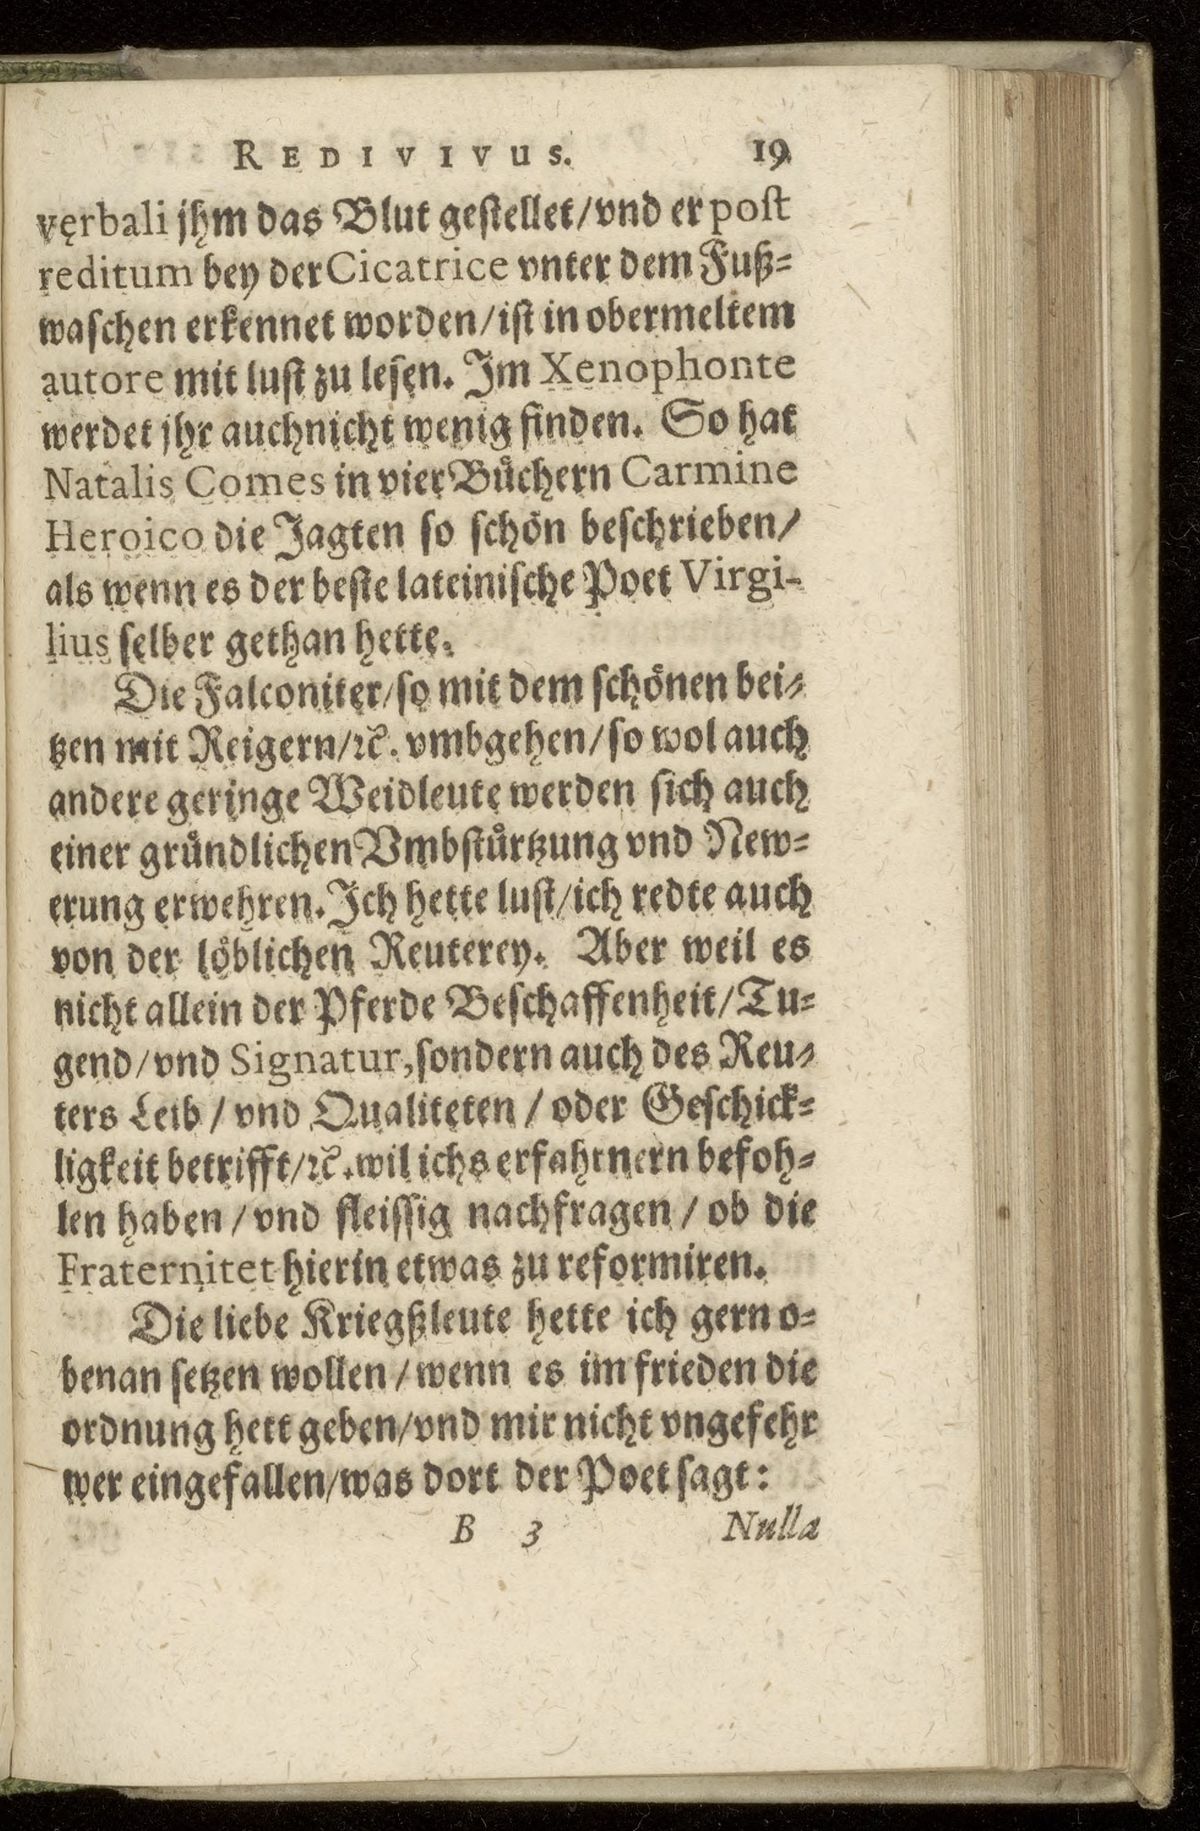 REDIVIVUS. 19
verbali jhm das Blut gestellet/vnd er post
reditum bey der Cicatrice vnter dem Fuß=
waschen erkennet worden/ist in obermeltem
autore mit lust zu lesen. Im Xenophonte
werdet jhr auch nicht wenig finden. So hat
Natalis Comes in vier Bůchern Carmine
Heroico die Jagten so schön beschrieben/
als wenn es der beste lateinische Poet Virgi-
lius selber gethan hette.
Die Falconiter/so mit dem schönen bei=
tzen mit Reigern/ꝛc. vmbgehen/so wol auch
andere geringe Weidleute werden sich auch
einer grůndlichen Vmbstůrtzung vnd New=
erung erwehren. Ich hette lust/ich redte auch
von der löblichen Reuterey. Aber weil es
nicht allein der Pferde Beschaffenheit/Tu=
gend/vnd Signatur,sondern auch des Reu=
ters Leib/vnd Qualiteten/oder Geschick=
ligkeit betrifft/ꝛc.wil ichs erfahrnern befoh=
len haben/vnd fleissig nachfragen/ob die
Fraternitet hierin etwas zu reformiren.
Die liebe Kriegßleute hette ich gern o=
benan setzen wollen/wenn es im frieden die
ordnung hett geben/vnd mir nicht vngefehr
wer eingefallen/was dort der Poet sagt:
B 3 Nulla